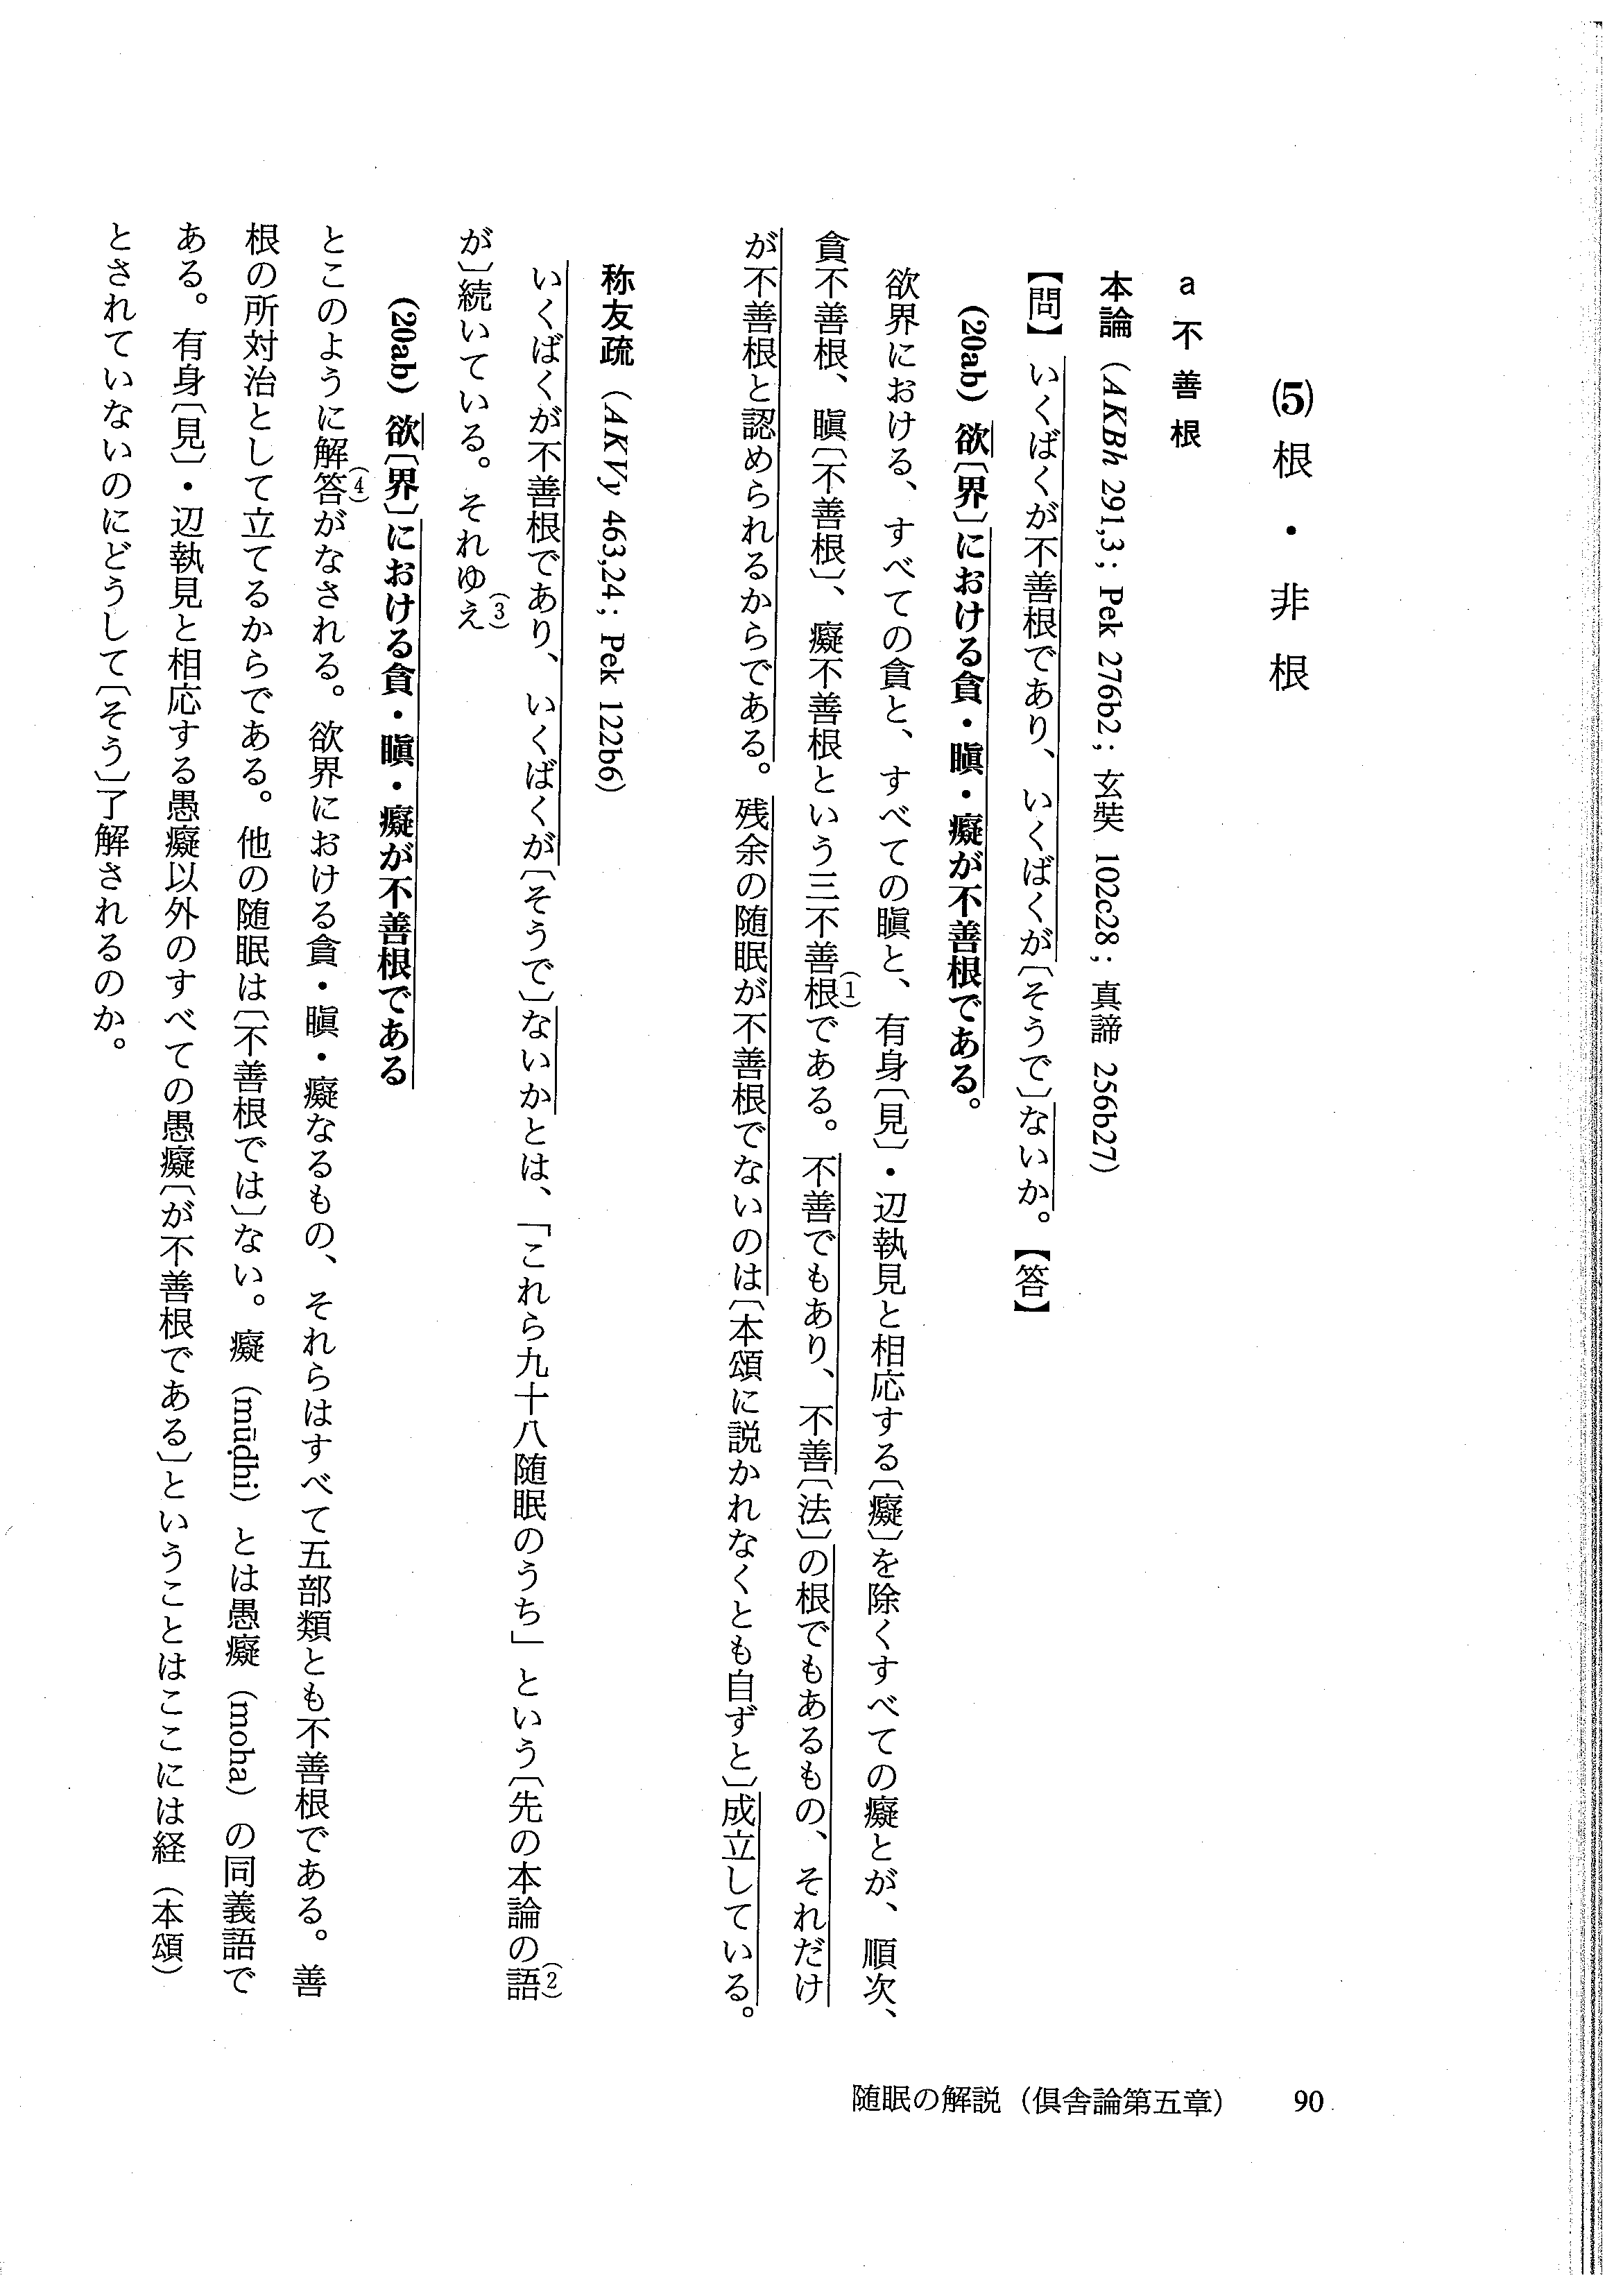 (5) 根・非根
a 不善根
本論（AKBh 291,3; Pek 276b2; 玄奘 102c28; 真諦 256b27）
【問】いくばくが不善根であり、いくばくが〔そうで〕ないか。【答】
(20ab) 欲〔界〕における貪・瞋・癡が不善根である。
欲界における、すべての貪と、すべての瞋と、有身〔見〕・辺執見と相応する〔癡〕を除くすべての癡とが、順次、
貪不善根、瞋〔不善根〕、癡不善根という三不善根(1)である。不善でもあり、不善〔法〕の根でもあるもの、それだけ
が不善根と認められるからである。残余の随眠が不善根でないのは〔本頌に説かれなくとも自ずと〕成立している。
称友疏（AKVy 463,24; Pek 122b6）
いくばくが不善根であり、いくばくが〔そうで〕ないかとは、「これら九十八随眠のうち」という〔先の本論の語(2)
が〕続いている。それゆえ(3)
(20ab) 欲〔界〕における貪・瞋・癡が不善根である
とこのように解答(4)がなされる。欲界における貪・瞋・癡なるもの、それらはすべて五部類とも不善根である。善
根の所対治として立てるからである。他の随眠は〔不善根では〕ない。癡（mūḍhi）とは愚癡（moha）の同義語で
ある。有身〔見〕・辺執見と相応する愚癡以外のすべての愚癡〔が不善根である〕ということはここには経（本頌）
とされていないのにどうして〔そう〕了解されるのか。
随眠の解説（倶舎論第五章） 90